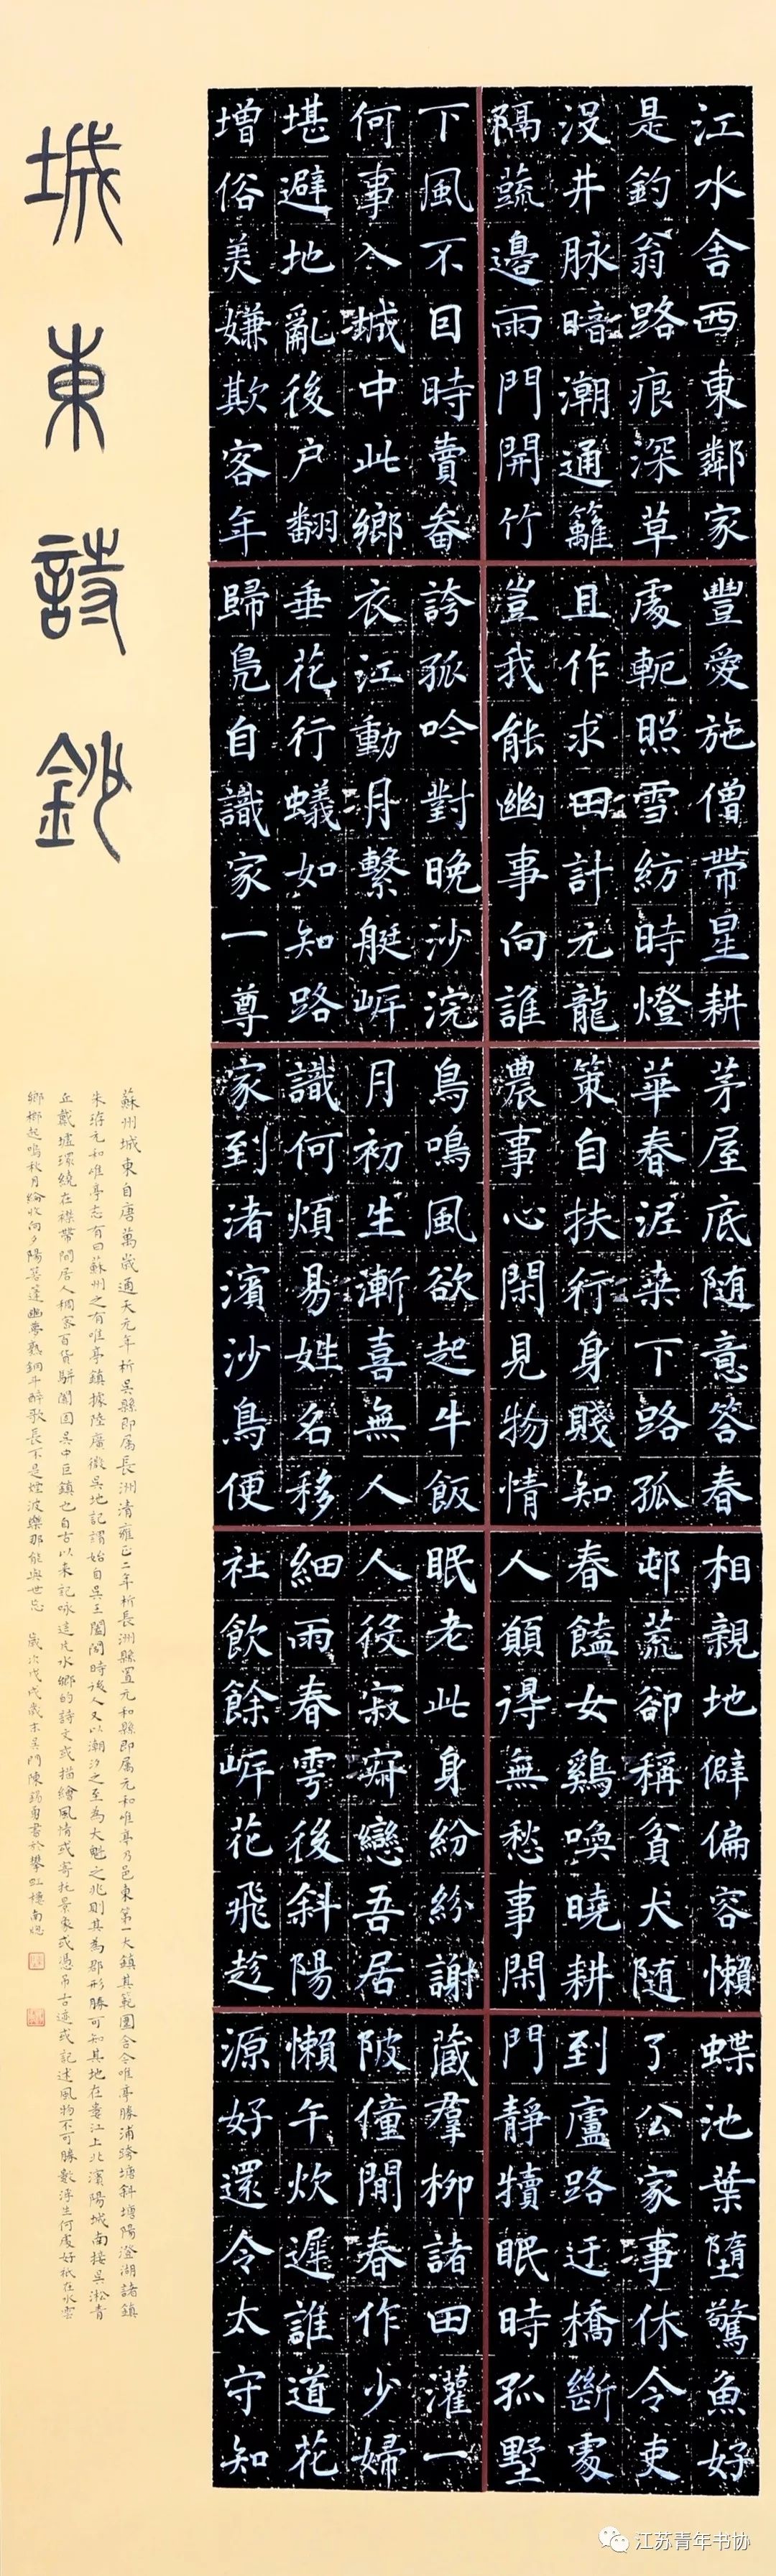 江水舍西東鄰家
是釣翁路痕深草
没井脉暗潮通籬
隔蔬邊雨門開竹
下風不因時賣畚
何事入城中此鄉
堪避地亂後户翻
增俗美嫌欺客年
豐愛施僧帶星耕
處軏照雪紡時燈
且作求田計元龍
豈我能幽事向誰
誇孤吟對晚沙浣
衣江動月繫艇岍
垂花行蟻如知路
歸鳧自識家一尊
茅屋底随意答春
華春泥桒下路孤
策自扶行身賤知
農事心閑見物情
鳥鳴風欲起牛飯
月初生漸喜無人
識何煩易姓名移
家到渚濱沙鳥便
相親地僻偏容懶
邨荒卻稱貧犬随
春饁女鷄喚曉耕
人願得無愁事閑
眠老此身紛紛謝
人役寂寂戀吾居
細雨春雩後斜陽
社飲餘岍花飛趁
蝶池葉墮驚魚好
了公家事休令吏
到廬路迂橋斷處
門靜犢眠時孤墅
藏羣柳諸田灌一
陂僮閒春作少婦
懶午炊遲誰道花
源好還令太守知
城東詩鈔
蘇州城東自唐萬歲通天元年析吳縣即屬長洲清雍正二年析長洲縣置元和縣即屬元和唯亭乃邑東第一大鎮其範圍合今唯亭勝浦跨塘斜塘陽澄湖諸鎮
朱游元和唯亭志有曰蘇州之有唯亭鎮據陸廣微吳地記謂始自吳王闔閭時後人又以潮汐之至為大魁之兆則其為郡形勝可知其地在婁江上北濱陽城南接吳淞青
丘戴墟環繞在襟帶間居人稠密百貨駢闐固吳中巨鎮也自古以來記咏這片水鄉的詩文或描繪風情或寄托景象或憑吊古迹或記述風物不可勝數浮生何處好祇在水雲
鄉榔起鳴秋月綸收向夕陽篷幽夢熟銅斗醉歌長不是煙波樂那能與世忘 歲次戊戌歲末吳門陳錫勇書於攀虹樓南牕
江苏青年书协